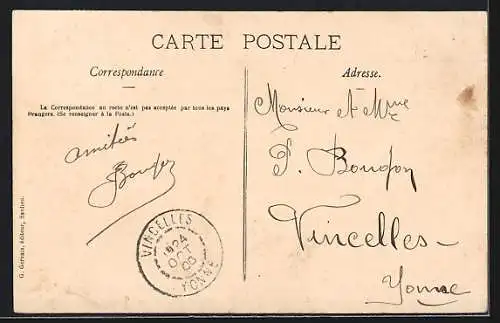 CARTE POSTALE
Correspondance
La Correspondance au recto n'est pas acceptée par tous les pays
étrangers. (Se renseigner à la Poste.)
amitiés
Adresse.
Monsieur et Mme
F. Bougon
Vincelles-
Yonne
VINCELLES
24
OCT
YONNE
G. Gervais, éditeur,